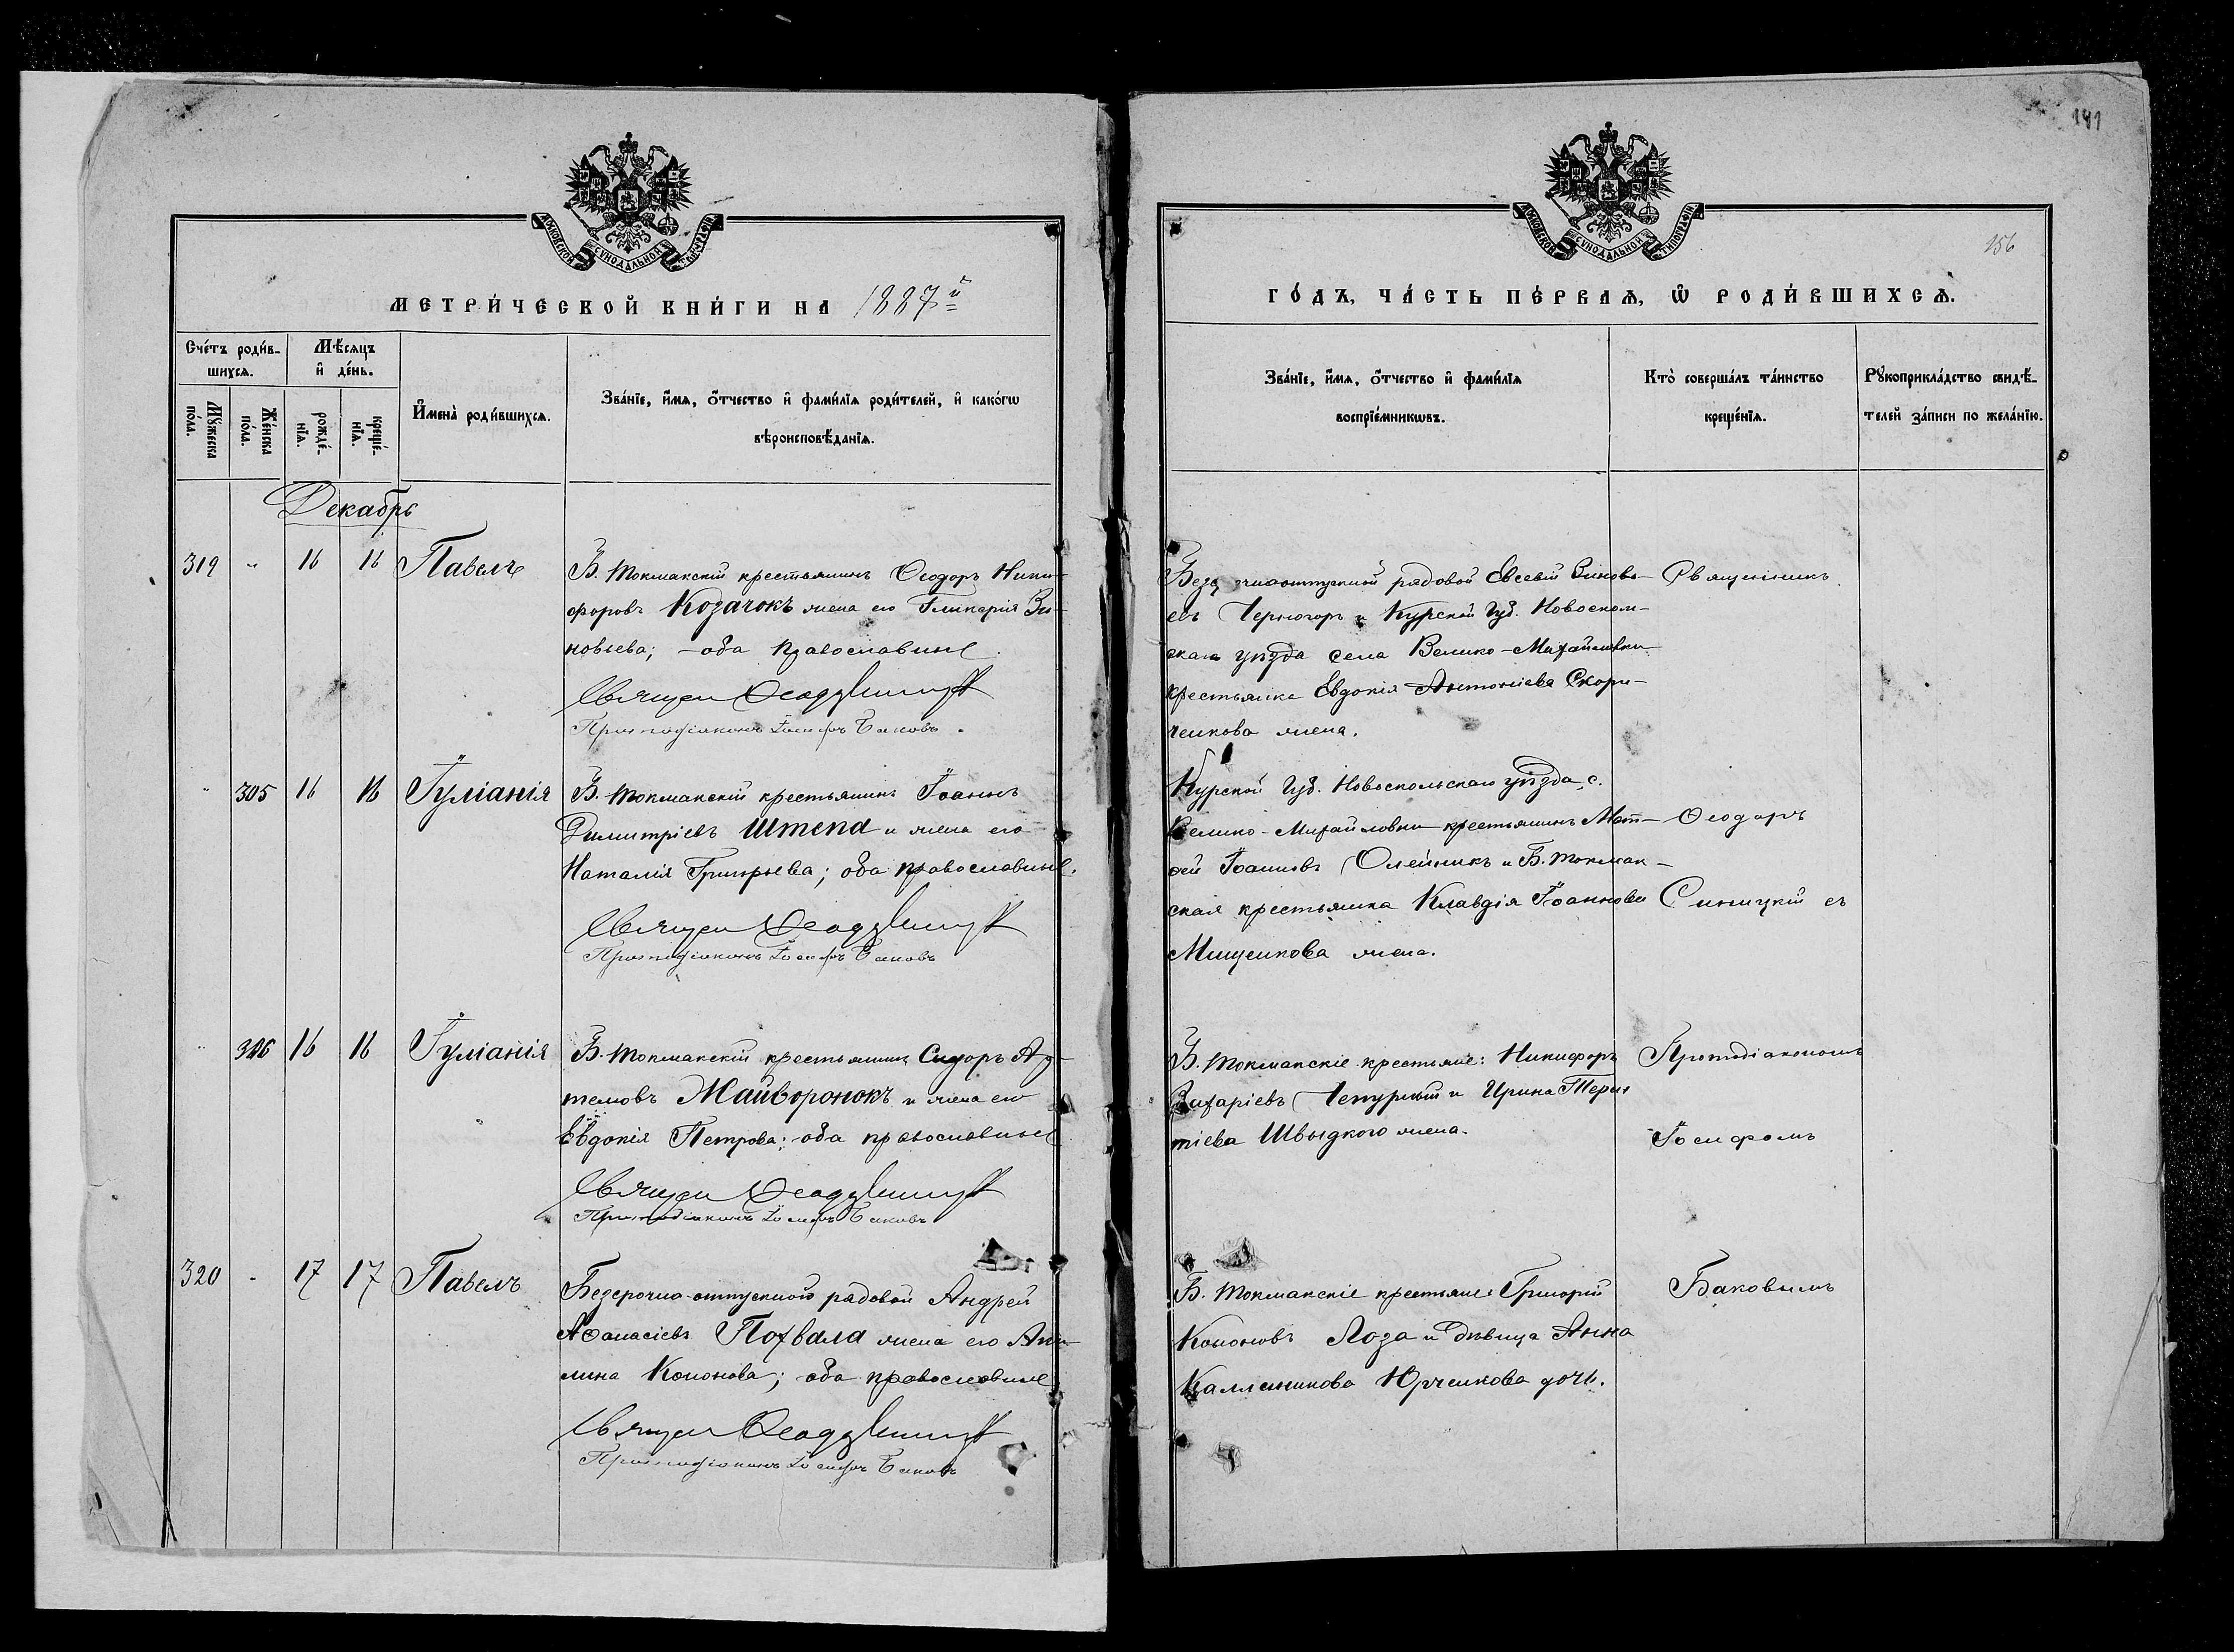 МОСКОВСКОЙ СУНОДАЛЬНОЙ
МЕТРИ́ЧЕСКОЙ КНИ́ГИ НА 1887й
Сче́тъ роди́в-
шихсѧ.
Мѣ́сѧцъ
и҆ де́нь.
Мꙋ́жеска
по́ла.
Же́нска
по́ла.
рожде́-
нїѧ.
креще́-
нїѧ.
И҆мена̀ роди́вшихсѧ.
Зва́нїе, и҆́мѧ, ѻ҆́тчество и҆ фами́лїѧ роди́телей, и҆ како́гѡ
вѣроисповѣ́данїѧ.
Декабрь
319 „ 16 16 Павелъ
Б. Токмакскій крестьянинъ Ѳеодоръ Ники-
форовъ Козачокъ жена его Гликерія Зи-
новьева; – оба православные
Священ Ѳеодор
Протодіаконъ Іосифъ Баковъ.
„ 305 16 16 Іуліанія
Б. Токмакскій крестьянинъ Іоаннъ
Димитріевъ Штепа и жена его
Наталія Григорьева; оба православные.
Священ Ѳеодор
Протодіаконъ Іосифъ Баковъ
„ 306 16 16 Іуліанія
Б. Токмакскій крестьянинъ Сидоръ Ар-
темовъ Майворонокъ и жена его
Евдокія Петрова; оба православные
Священ Ѳеодор
Протодіаконъ Іосифъ Баковъ
320 „ 17 17 Павелъ
Безсрочно-отпускной рядовой Андрей
Аѳанасіевъ Похвала жена его Аки-
лина Кононова; оба православные
Священ Ѳеодор
Протодіаконъ Іосифъ Баковъ
141
МОСКОВСКОЙ СУНОДАЛЬНОЙ ТИПОГРАФІИ
156
ГО́ДЪ, ЧА́СТЬ ПЕ́РВАѦ, Ѽ РОДИ́ВШИХСѦ.
Зва́нїе, и҆́мѧ, ѻ҆́тчество и҆ фами́лїѧ
воспрїе́мникѡвъ.
Кто̀ соверша́лъ та́инство
креще́нїѧ.
Рꙋкоприкла́дство свидѣ́-
телей за́писи по жела́нїю.
рядовой Евсевій Зиновь-
евъ Черногоръ и Курской Губ. Новооскол-
скаго уѣзда села Велико-Михайловки
крестьянка Евдокія Антоніева Скори-
ченкова жена.
Священникъ
Курской Губ. Новоскольскаго уѣзда, с.
Велико-Михайловки крестьянинъ Мат-
ѳей Іоанновъ Олейникъ и Б. Токмак-
ская крестьянка Клавдія Іоаннова
Мищенкова жена.
Ѳеодоръ
Синицкій съ
Б. Токмакскіе крестьяне: Никифоръ
Захаріевъ Чепурный и Ирина Терен
тіева Швыдкого жена.
Протодіакономъ
Іосифомъ
Б. Токмакскіе крестьяне: Григорій
Кононовъ Лоза и дѣвица Анна
Каллиникова Юрченкова дочь.
Баковымъ